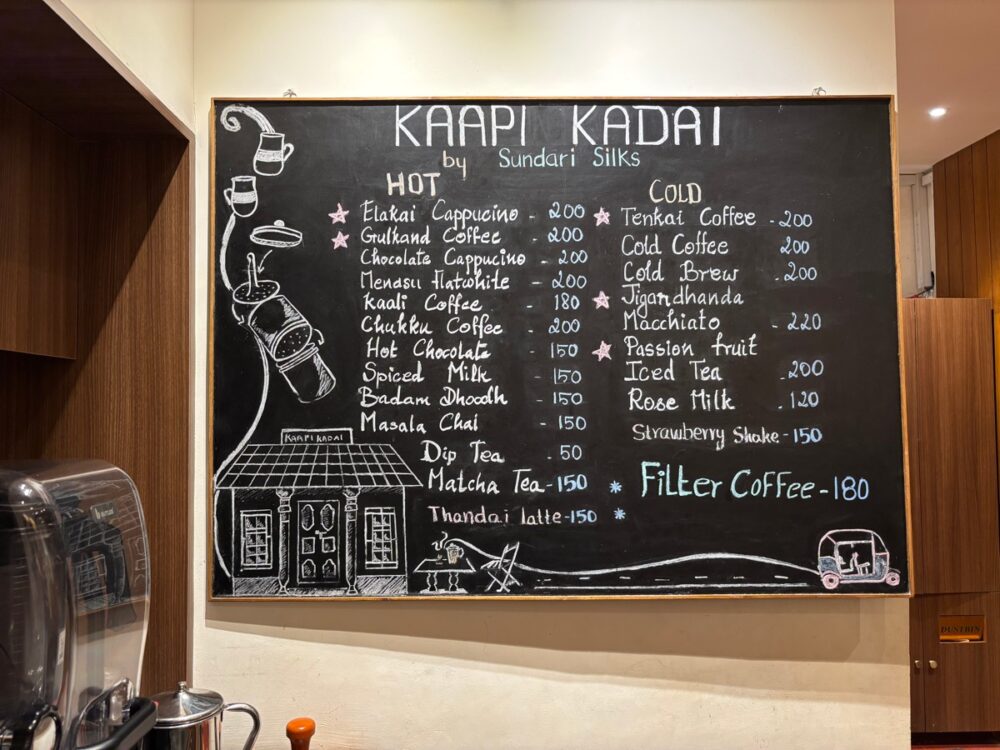 KAAPI KADAI
by Sundari Silks
HOT
Elakai Cappucino - 200
Gulkand Coffee - 200
Chocolate Cappucino - 200
Menasu flatwhite - 200
Kaali Coffee - 180
Chukku Coffee - 200
Hot Chocolate - 150
Spiced Milk - 150
Badam Dhoodh - 150
Masala Chai - 150
Dip Tea - 50
Matcha Tea - 150
Thandai latte - 150
COLD
Tenkai Coffee - 200
Cold Coffee 200
Cold Brew - 200
Jigandhanda
Macchiato - 220
Passion fruit
Iced Tea - 200
Rose Milk - 120
Strawberry Shake - 150
* Filter Coffee - 180
*
KAAPI KADAI
DUSTBIN